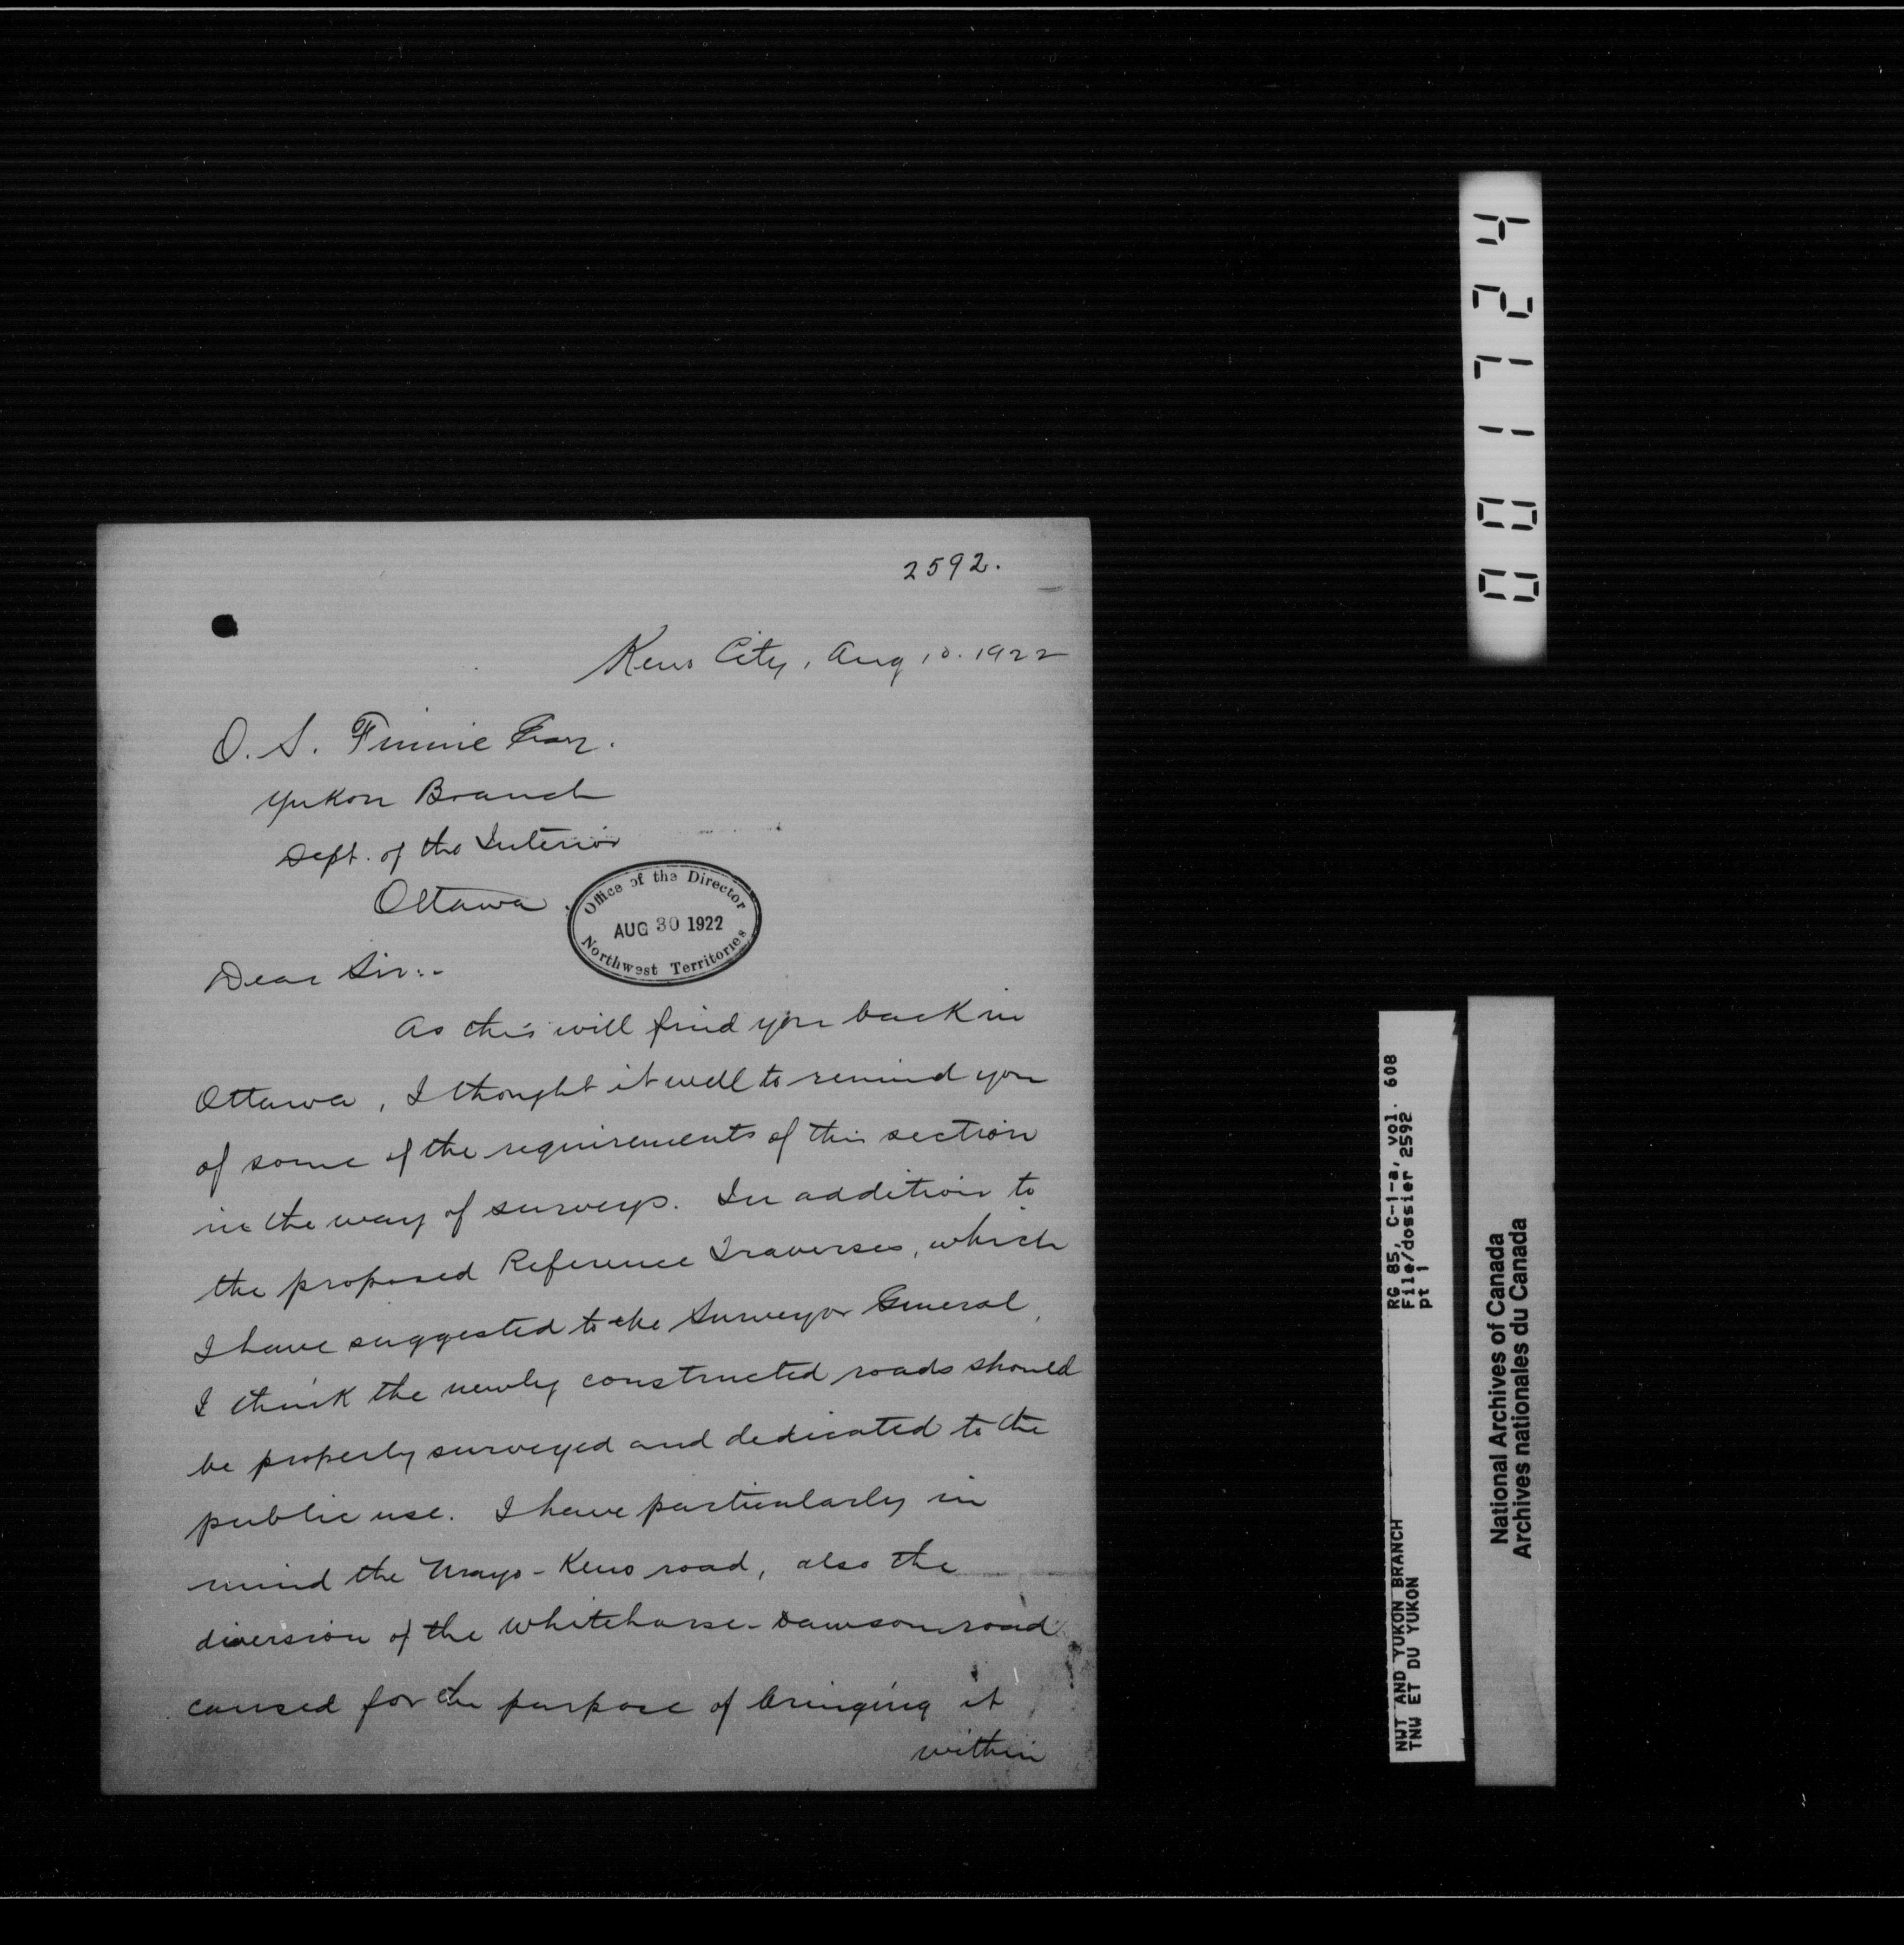 2592.
Keno City, Aug 10. 1922
O. S. Finnie Esq.
Yukon Branch
Dept. of the Interior
Ottawa.
Office of the Director
AUG 30 1922
Northwest Territories
Dear Sir:-
As this will find you back in
Ottawa, I thought it well to remind you
of some of the requirements of this section
in the way of surveys. In addition to
the proposed Reference Traverses, which
I have suggested to the Surveyor General,
I think the newly constructed roads should
be properly surveyed and dedicated to the
public use. I have particularly in
mind the Mayo-Keno road, also the
diversion of the Whitehorse-Dawson road
caused for the purpose of bringing it
within
001124
RG 85, C-1-a, vol. 608
File/dossier 2592
pt 1
NWT AND YUKON BRANCH
TNW ET DU YUKON
National Archives of Canada
Archives nationales du Canada